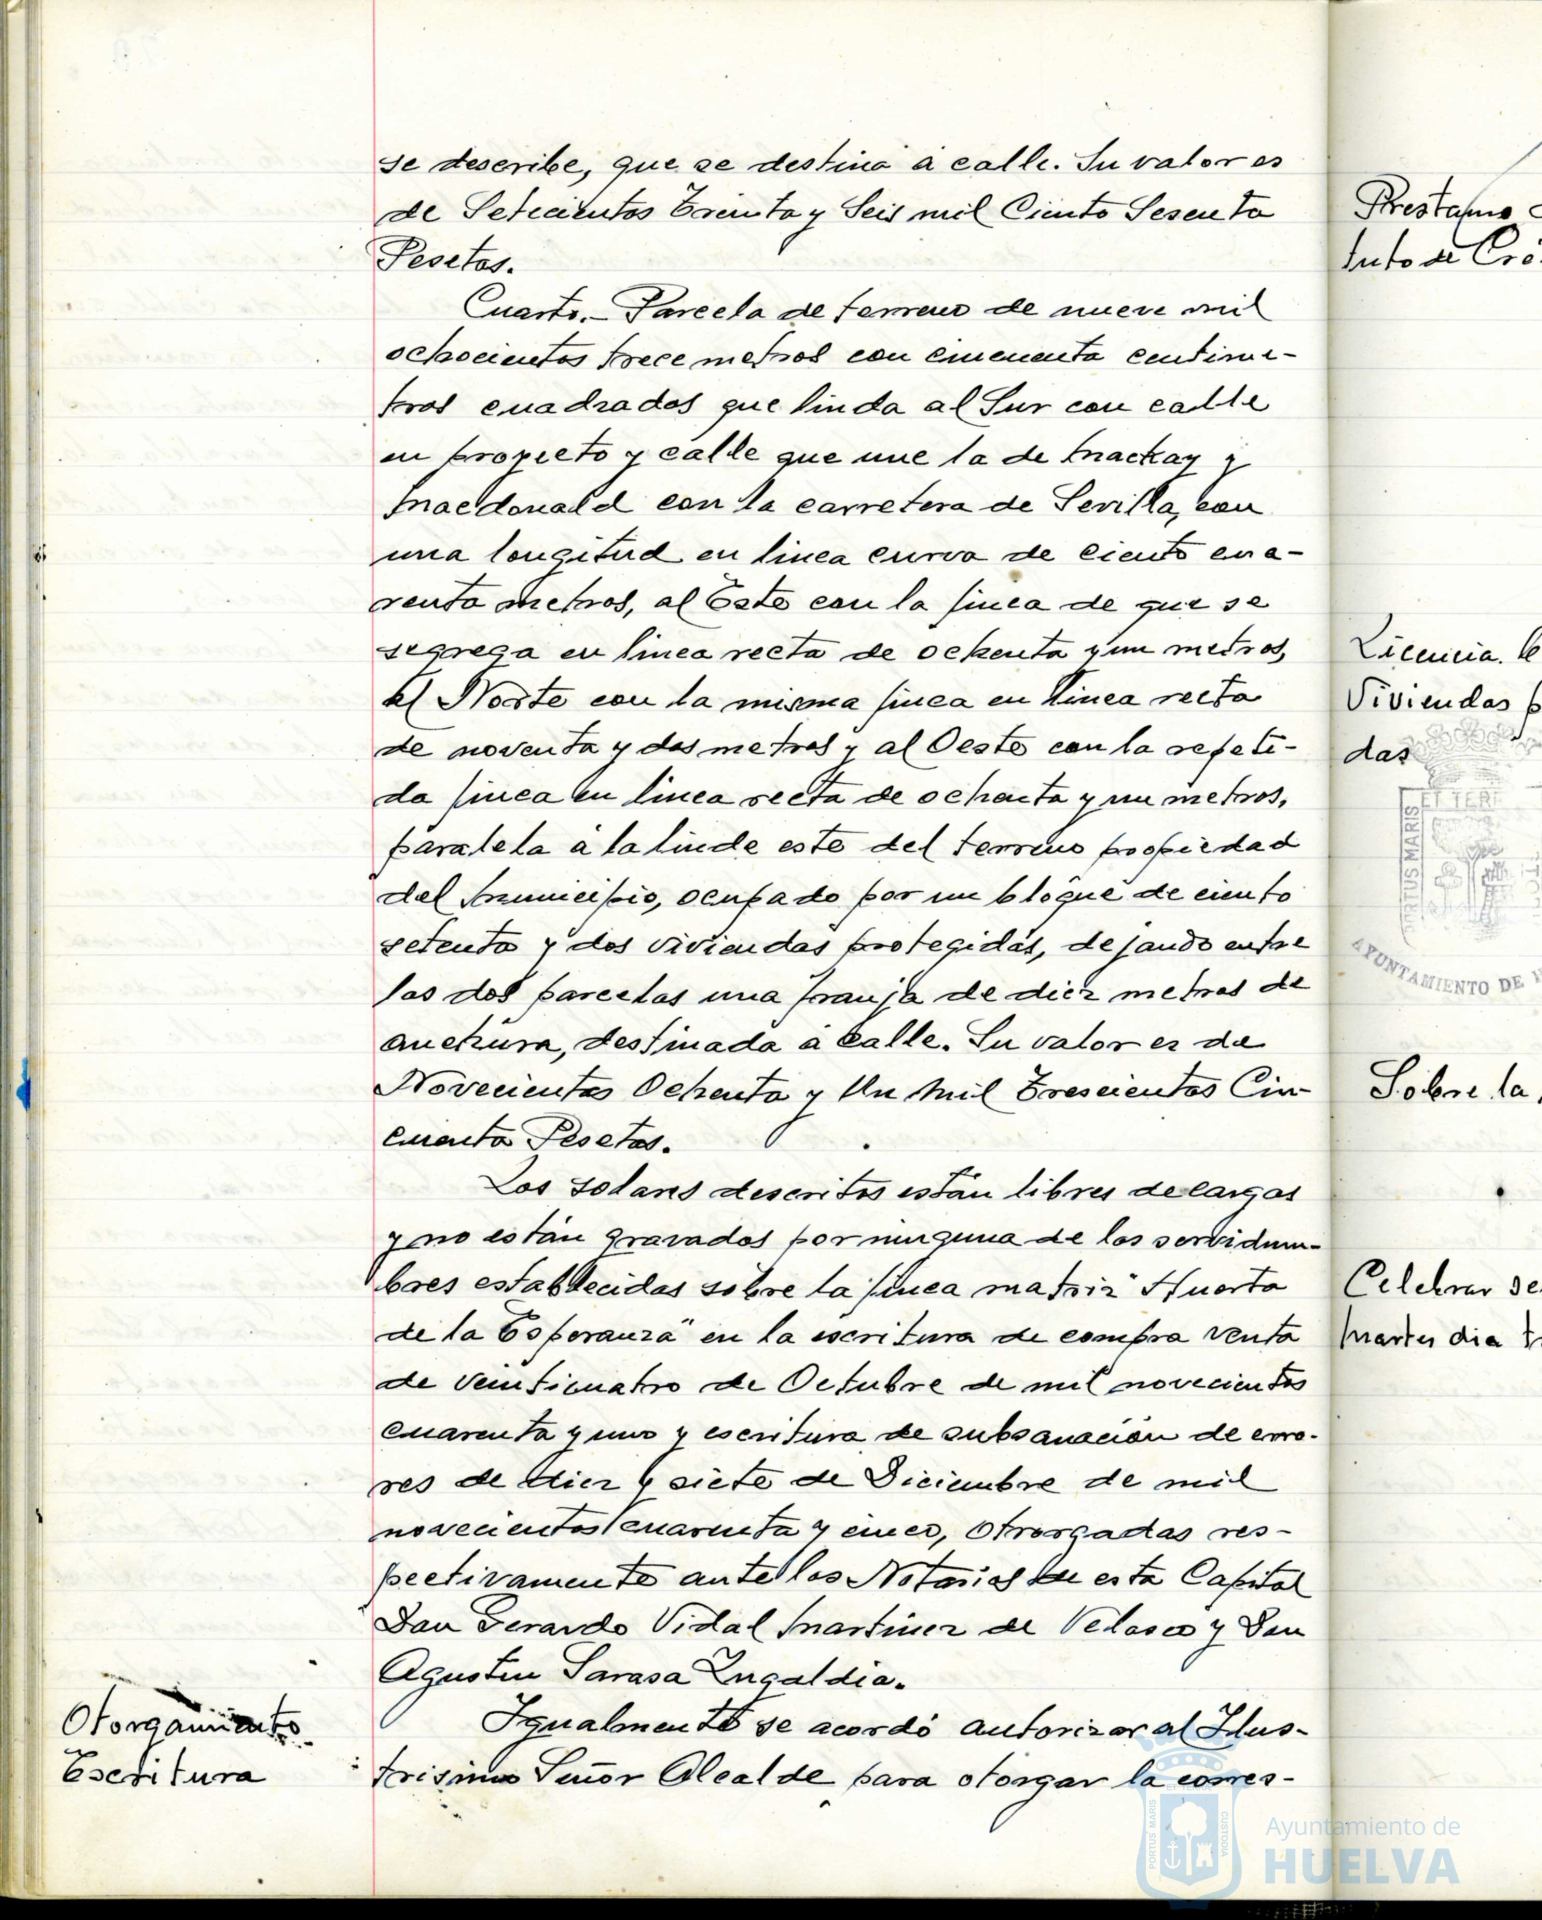 se describe, que se destina á calle. Su valor es
de Setecientos Treinta y Seis mil Ciento Sesenta
Pesetas.
Cuarto.- Parcela de terreno de nueve mil
ochocientos trece metros con cincuenta centíme-
tros cuadrados que linda al Sur con calle
en proyecto y calle que une la de Mackay y
Macdonald con la carretera de Sevilla, con
una longitud en linea curva de ciento cua-
renta metros, al Este con la finca de que se
segrega en linea recta de ochenta y un metros,
al Norte con la misma finca en linea recta
de noventa y dos metros y al Oeste con la repeti-
da finca en linea recta de ochenta y un metros,
paralela á la linde este del terreno propiedad
del Municipio, ocupado por un bloque de ciento
setenta y dos viviendas protegidas, dejando entre
las dos parcelas una franja de diez metros de
anchura, destinada á calle. Su valor es de
Novecientas Ochenta y Un Mil Trescientas Cin-
cuenta Pesetas.
Los solares descritos están libres de cargas
y no están gravados por ninguna de las servidum-
bres establecidas sobre la finca matriz "Huerta
de la Esperanza" en la escritura de compra venta
de veinticuatro de Octubre de mil novecientos
cuarenta y uno y escritura de subsanación de erro-
res de diez y siete de Diciembre de mil
novecientos cuarenta y cinco, otrorgadas res-
pectivamente ante los Notarios de esta Capital
Don Gerardo Vidal Martinez de Velasco y Don
Agustin Sarasa Zugaldia.
Otorgamiento
Escritura
Igualmente se acordó autorizar al Ilus-
trisimo Señor Alcalde para otorgar la corres-
Prestamo
tuto de Cré
Licencia
Viviendas p
das
PORTUS MARIS
ET TERR
AYUNTAMIENTO DE H
Sobre la
Celebrar se
Martes dia tr
PORTUS MARIS
CUSTODIA
Ayuntamiento de
HUELVA